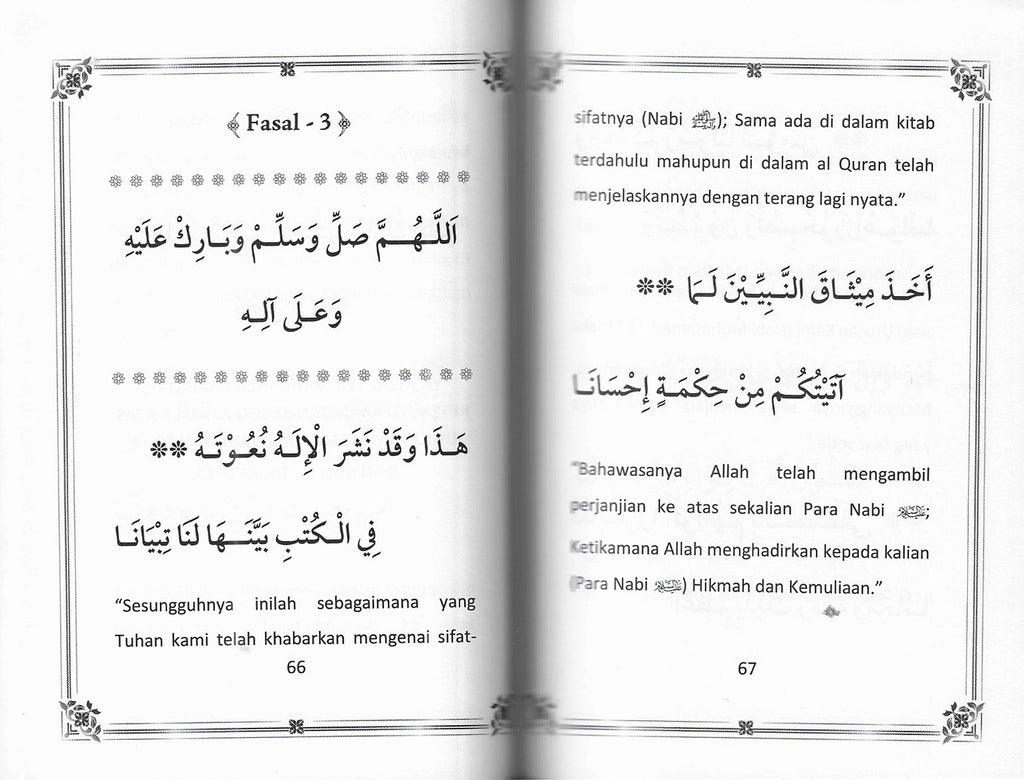 Fasal - 3
اَللَّـهُـمَّ صَلِّ وَسَلِّـمْ وَبَـارِكْ عَلَيْهِ
وَعَـلَى آلِـهِ
هَـذَا وَقَدْ نَشَرَ الْإِلَـهُ نُعُـوْتَـهُ **
فِي الْـكُتْبِ بَيَّنَـهَا لَنَا تِبْيَانَـا
“Sesungguhnya inilah sebagaimana yang
Tuhan kami telah khabarkan mengenai sifat-
66
sifatnya (Nabi ﷺ); Sama ada di dalam kitab
terdahulu mahupun di dalam al Quran telah
menjelaskannya dengan terang lagi nyata.”
أَخَـذَ مِيْثَـاقَ النَّـبِيِّـيْنَ لَـمَا **
آتَيْتُكُـمْ مِنْ حِكْمَـةٍ إِحْسَانَـا
“Bahawasanya Allah telah mengambil
perjanjian ke atas sekalian Para Nabi ;
Ketikamana Allah menghadirkan kepada kalian
(Para Nabi ) Hikmah dan Kemuliaan.”
67